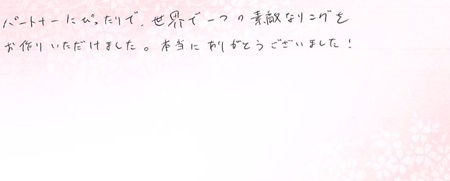 パートナーにぴったりで、世界で一つの素敵なリングを
お作りいただけました。本当にありがとうございました！